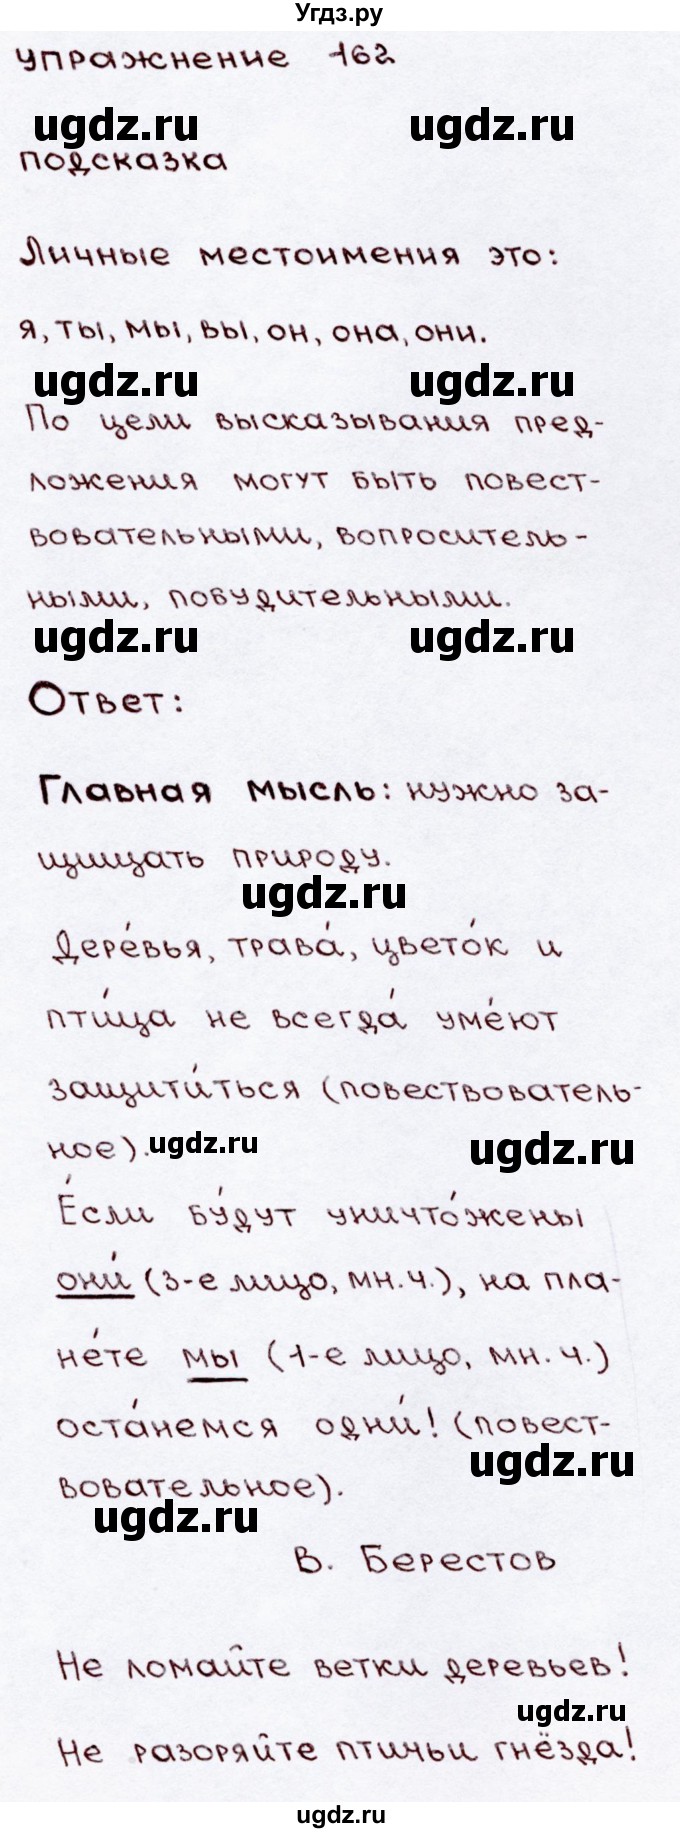 Угдз.ру
упражнение 162
ugdz.ru ugdz.ru
подсказка
Личные местоимения это:
я, ты, мы, вы, он, она, они.
ugdz.ru ugdz.ru
По цели высказывания пред-
ложения могут быть повест-
вовательными, вопроситель-
ными, побудительными.
ugdz.ru ugdz.ru
Ответ:
Главная мысль: нужно за-
щищать природу.
ugdz.ru
Дере́вья, трава́, цвето́к и
пти́ца не всегда́ уме́ют
защити́ться (повествователь-
ное).
ugdz.ru ugdz.ru
Е́сли бу́дут уничто́жены
они́ (3-е лицо, мн.ч.), на пла-
не́те мы (1-е лицо, мн.ч.)
оста́немся одни́! (повест-
ugdz.ru
вовательное).
ugdz.ru
В. Берестов
Не ломайте ветки деревьев!
ugdz.ru
Не разоряйте птичьи гнёзда!
ugdz.ru